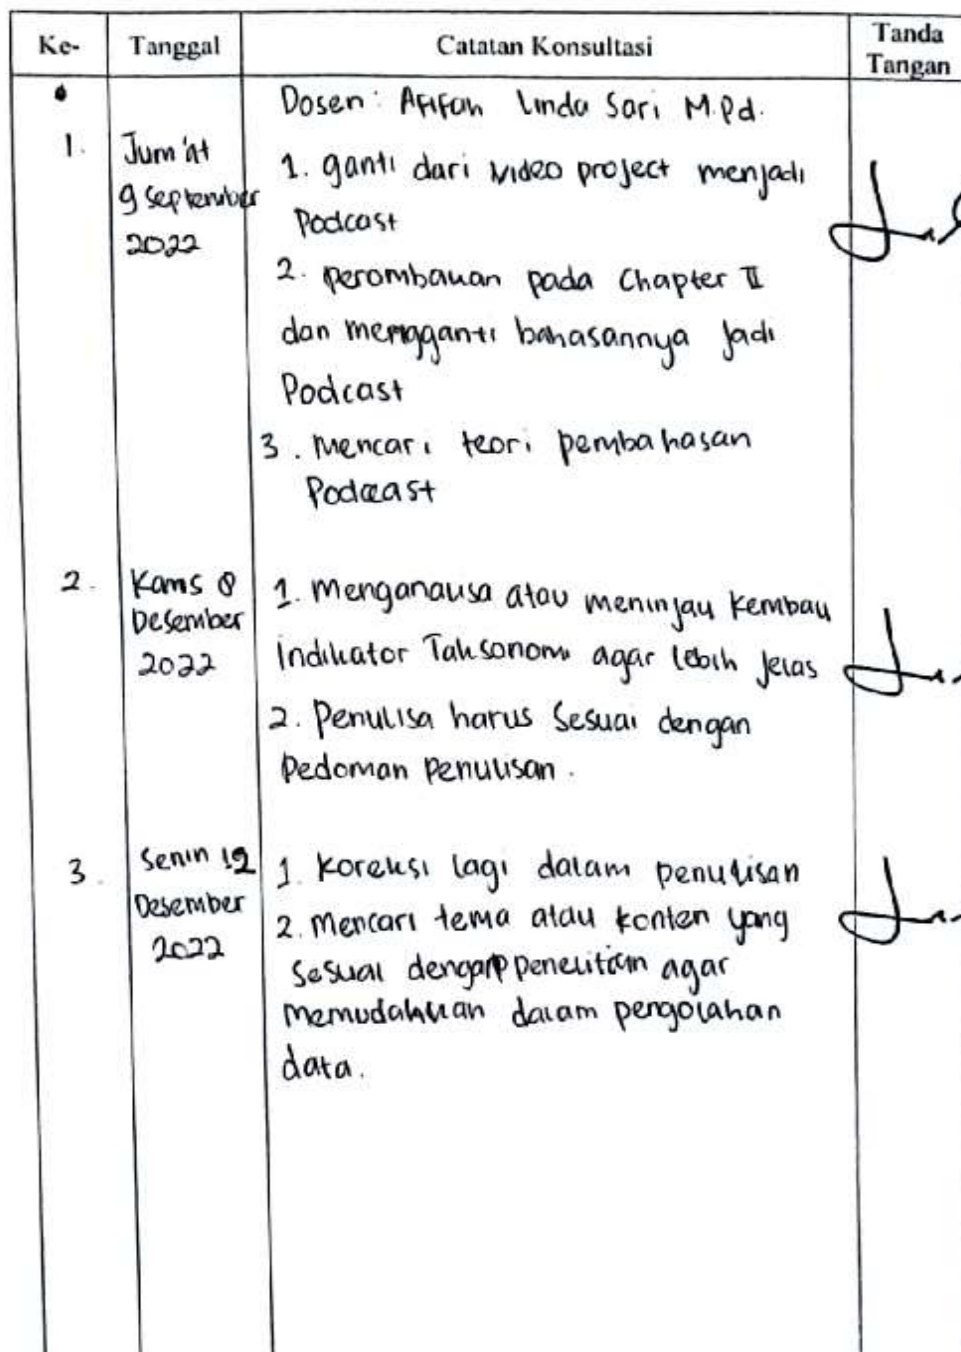 Ke- Tanggal Catatan Konsultasi Tanda Tangan
Dosen: Afifah Linda Sari M.Pd.
1. Jum'at 9 September 2022
1. ganti dari video project menjadi
Podcast
2. perombakan pada Chapter II
dan mengganti bahasannya jadi
Podcast
3. Mencari teori pembahasan
Podcast
2. Kamis 8 Desember 2022
1. Menganalisa atau meninjau kembali
indikator Taksonomi agar lebih jelas
2. Penulisa harus sesuai dengan
pedoman penulisan.
3. Senin 12 Desember 2022
1. Koreksi lagi dalam penulisan
2. Mencari tema atau konten yang
sesuai dengan penelitian agar
memudahkan dalam pengolahan
data.